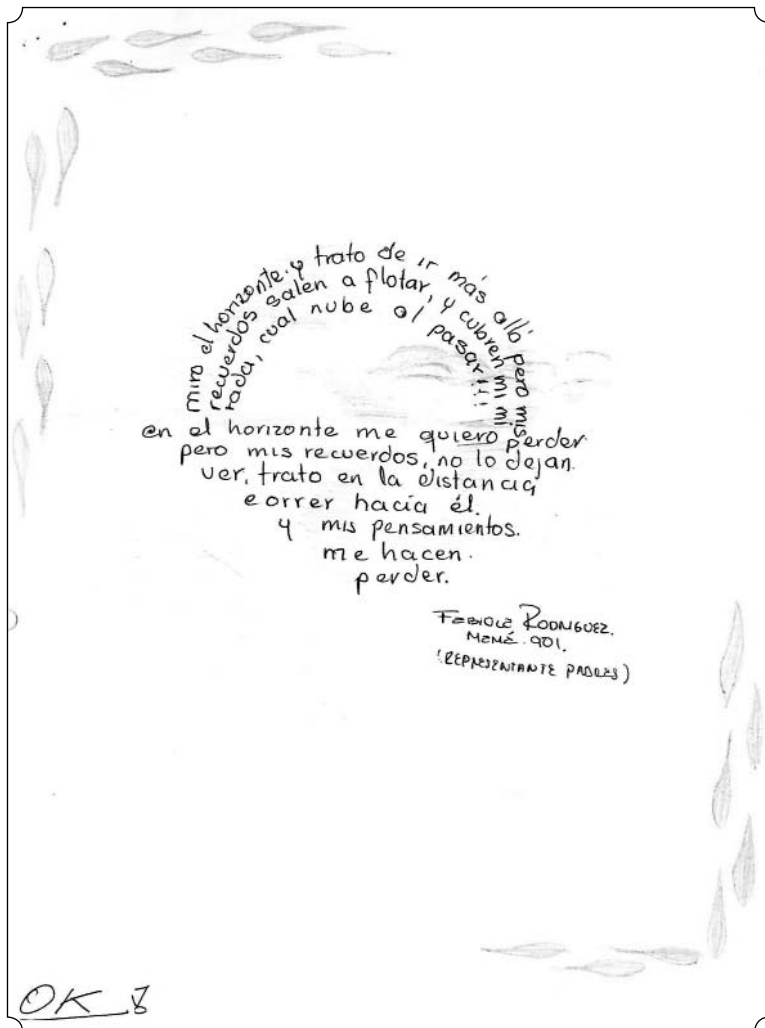 miro el horizonte y trato de ir más allá pero mis
recuerdos salen a flotar, y cubren mi mi
rada, cual nube al pasar!!!
en el horizonte me quiero perder
pero mis recuerdos, no lo dejan.
ver, trato en la distancia
correr hacía él.
y mis pensamientos.
me hacen.
perder.
Fabiola Rodriguez.
Mamá. 901.
(REPRESENTANTE PADRES)
OK